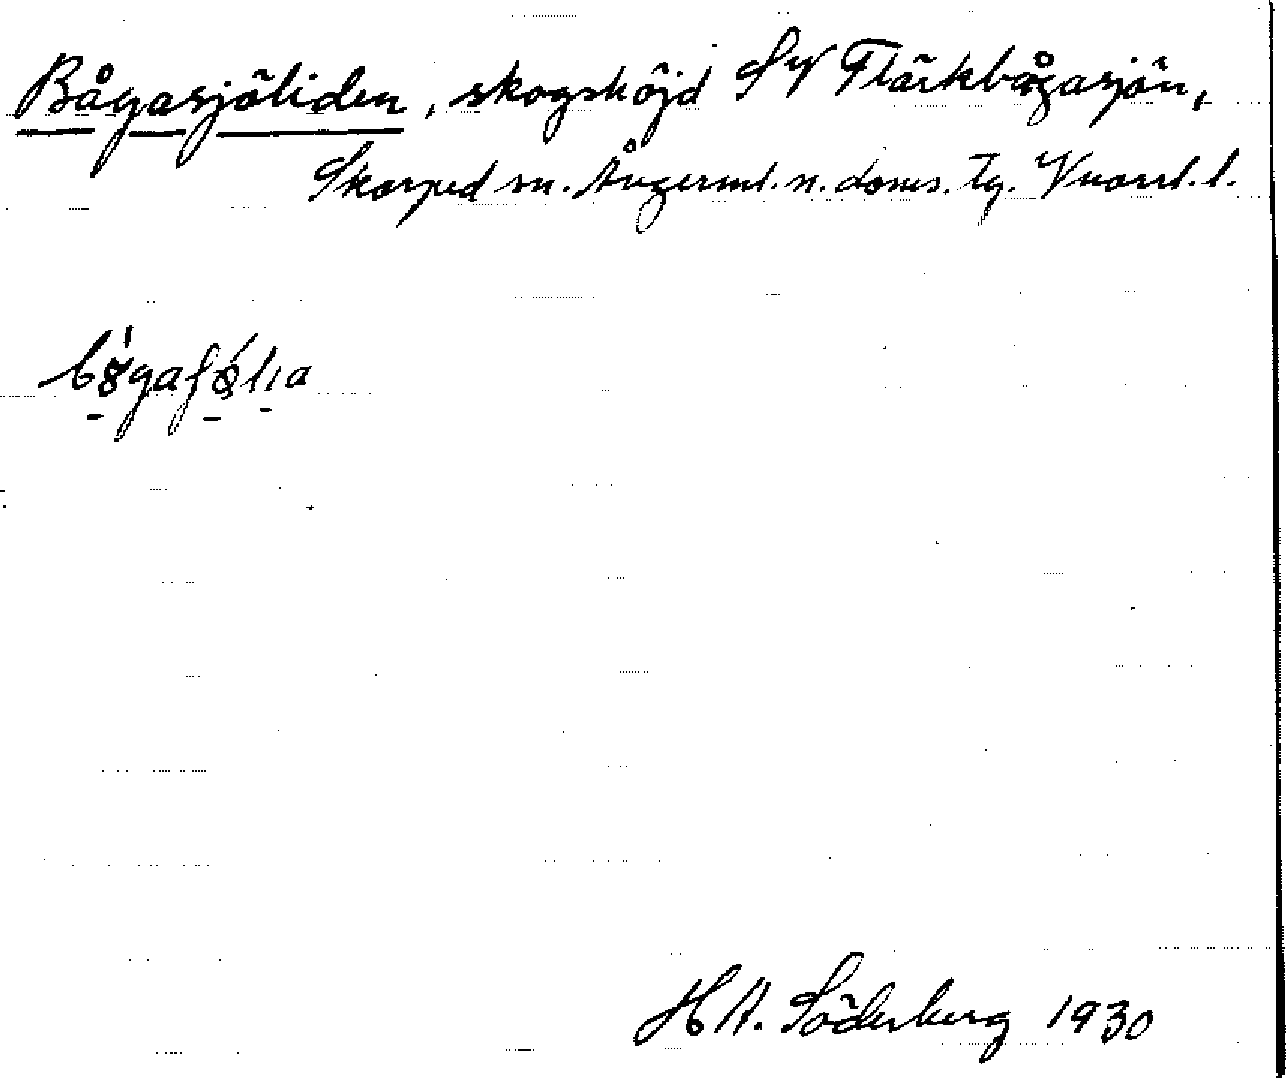 Bågasjöliden, skogshöjd SV Flärkbågasjön,
Skorped sn. Ångerml. n. doms. Tg. Vnorrl. l.
H A. Söderberg 1930